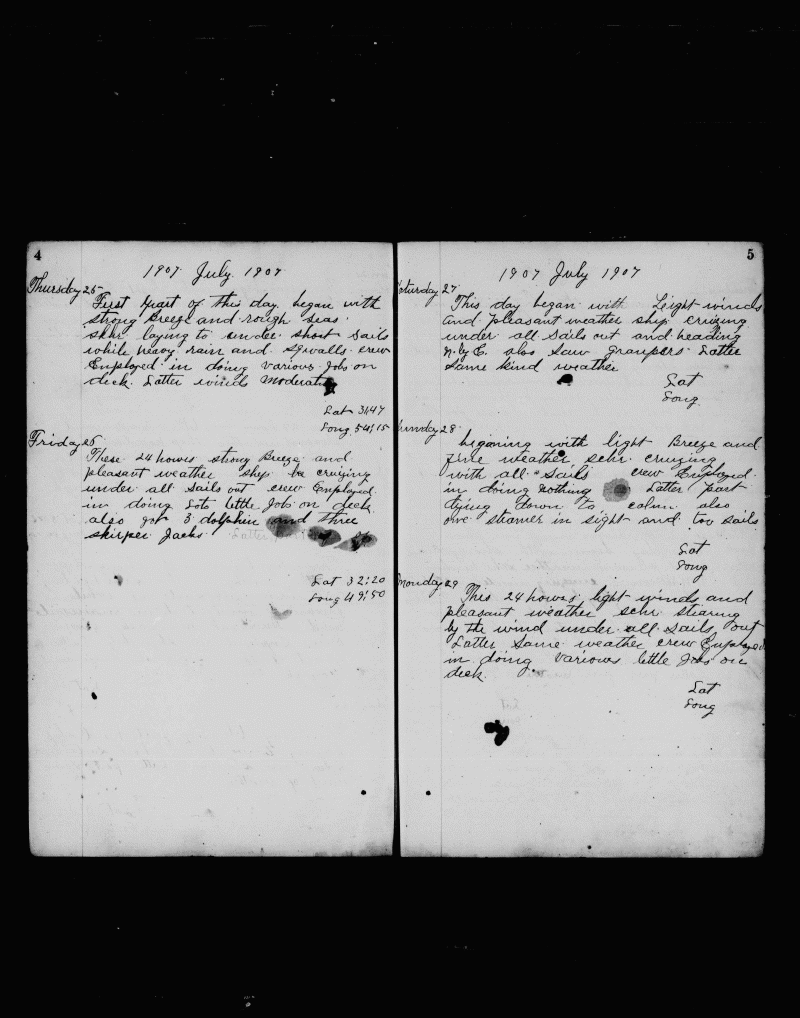 4
1907 July. 1907
Thursday 25
First part of this day began with
strong Breeze and rough seas.
schr laying to under short sails
while heavy rain and Sqwalls crew
Employed in doing various Jobs on
deck. Latter winds Moderating
Lat 31,47
Long 54,15
Friday 26
These 24 howrs strong Breeze and
pleasant weather ship be cruizing
under all sails out crew Employed.
in doing Lots little Jobs on deck.
also got 3 dolphin and three
skipper Jacks.
Lat 32:20
Long 49:50
5
1907 July 1907
Saturday 27
This day began with Light winds
and pleasant weather ship cruizing
under all sails out and heading
N. by E. also saw graupers Latter
same kind weather
Lat
Long
Sunday 28
begining with light Breeze and
fine weather schr. cruizing
with all sails crew Employed.
in doing nothing Latter part
dying down to calm also
one steamer in sight and too sails
Lat
Long
Monday 29
This 24 howrs light winds and
pleasant weather schr stearing
by the wind under all sails out
Latter Same weather crew Employed
in doing variows little Jobs on
deck.
Lat
Long